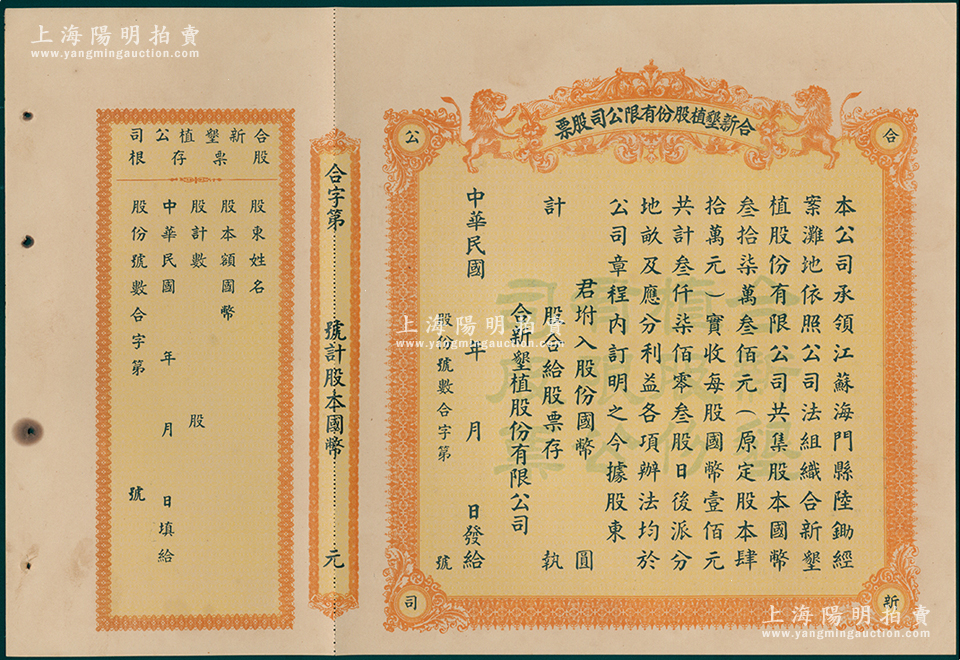 上海陽明拍賣
www.yangmingauction.com
合新墾植股份有限公司股票
合
公
新
司
本公司承領江蘇海門縣陸鋤經
案灘地依照公司法組織合新墾
植股份有限公司共集股本國幣
叁拾柒萬叁佰元(原定股本肆
拾萬元)實收每股國幣壹佰元
共計叁仟柒佰零叁股日後派分
地畝及應分利益各項辦法均於
公司章程內訂明之今據股東
君坿入股份國幣 圓
計 股合給股票存 執
合新墾植股份有限公司
中華民國 年 月 日發給
股份號數合字第 號
合新墾植股份有限公司股票
上海陽明拍賣
www.yangmingauction.com
合字第 號計股本國幣 元
合新墾植公司
股票存根
股東姓名
股本額國幣
股計數 股
中華民國 年 月 日填給
股份號數合字第 號
上海陽明拍賣
www.yangmingauction.com